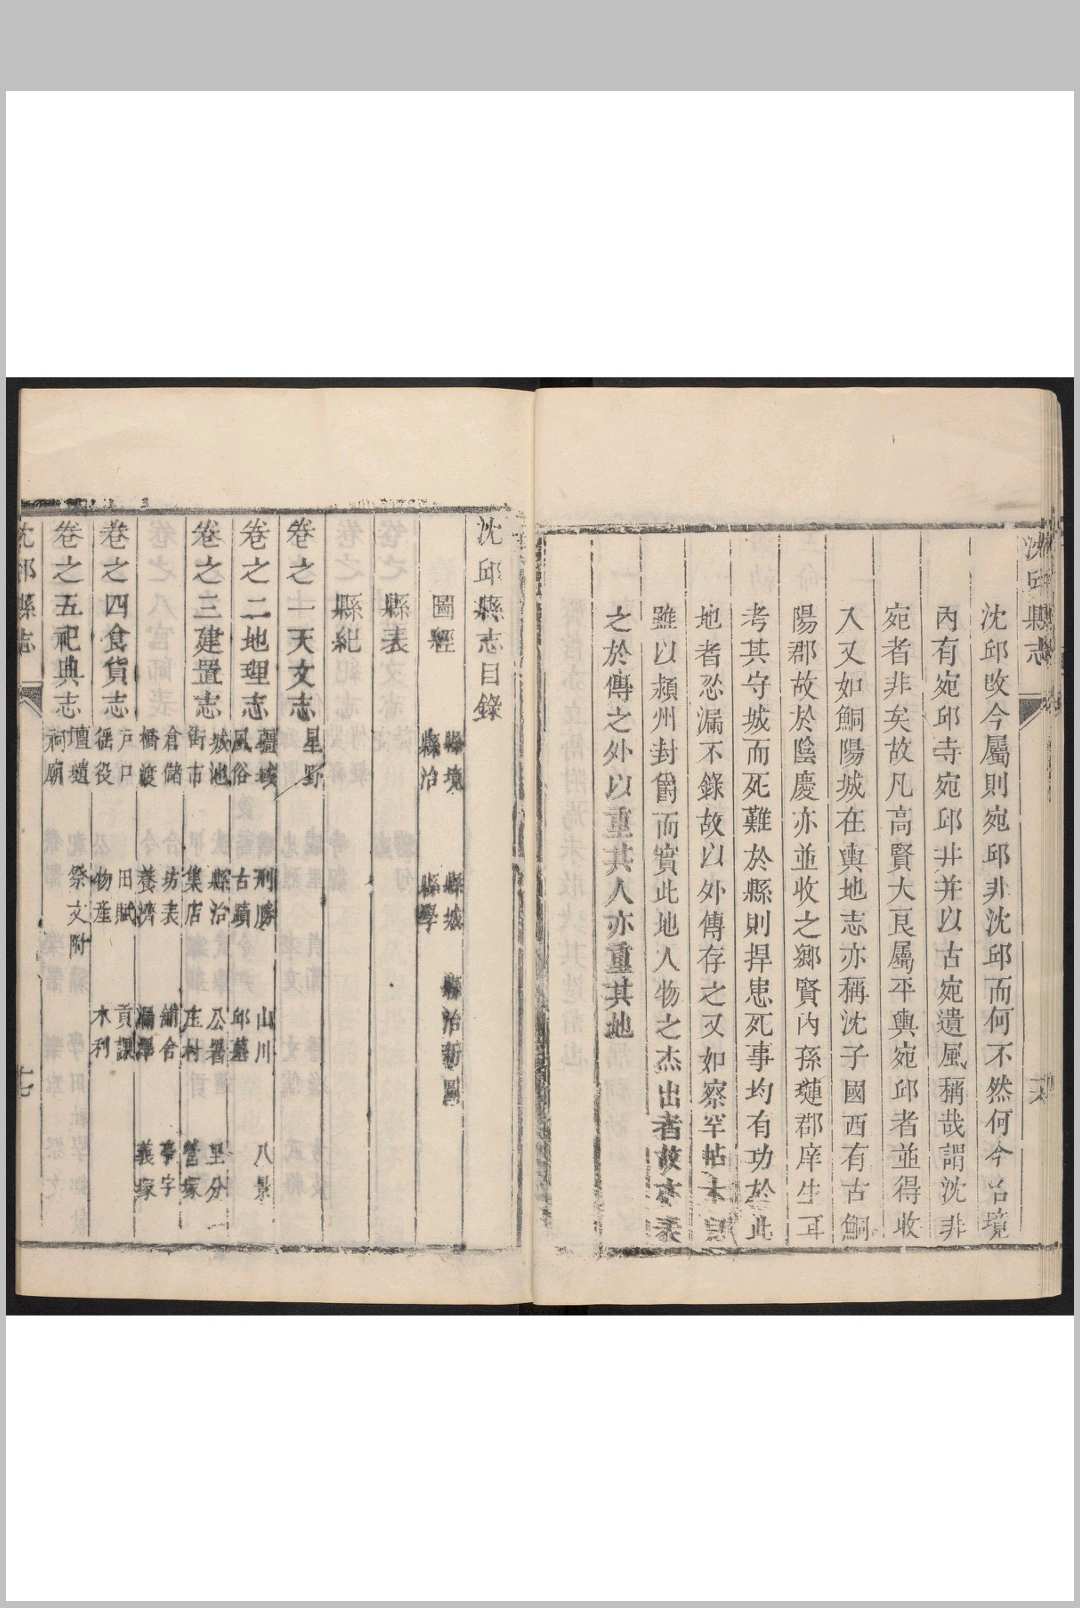 沈邱縣志
沈邱改今屬則宛邱非沈邱而何不然何今名境
內有宛邱寺宛邱井并以古宛遺風稱哉謂沈非
宛者非矣故凡高賢大良屬平輿宛邱者並得收
入又如鮦陽城在輿地志亦稱沈子國西有古鮦
陽郡故於陰慶亦並收之鄉賢內孫璉郡庠生耳
考其守城而死難於縣則捍患死事均有功於此
地者恐漏不錄故以外傳存之又如察罕帖木兒
雖以潁州封爵而實此地人物之杰出者故亦彔
之於傳之外以重其人亦重其地
沈邱縣志目錄
圖經
縣境 縣城 縣治新圖
縣治 縣學
縣表
縣紀
卷之一天文志
星野
卷之二地理志
疆域 形勝 山川 八景
風俗 古蹟 邱墓
卷之三建置志
城池 縣治 公署 里分
街市 集店 庄村 營寨
倉儲 坊表 鋪舍 亭字
橋渡 養濟 漏澤 義塚
卷之四食貨志
戶口 田賦 貢課
徭役 物產 水利
卷之五祀典志
壇壝 祭文附
祠廟
沈邱縣志
十七